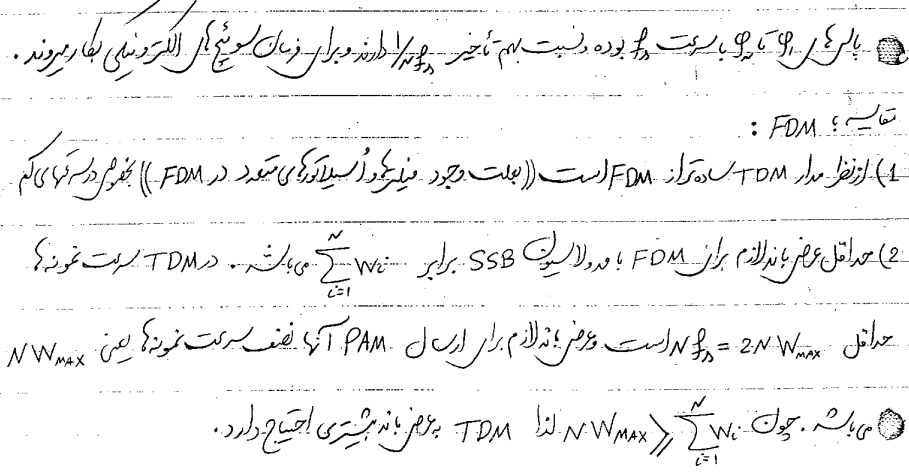 پالس های φ₁ تا φ_N با سرعت f_s بوده و نسبت بهم تأخیر 1/Nf_s دارند و برای فرمان سوئیچ های الکترونیکی بکار میروند.
مقایسه با FDM :
1) از نظر مدار TDM ساده تر از FDM است ((بعلت وجود فیلترها و اُسیلاتورهای متعدد در FDM)) بخصوص در سرعتهای کم
2) حداقل عرض باند لازم برای FDM با مدولاسیون SSB برابر ∑_{i=1}^{N} W_i می باشد. در TDM سرعت نمونه ها
حداقل Nf_s = 2N W_MAX است و عرض باند لازم برای ارسال PAM آنها نصف سرعت نمونه ها یعنی N W_MAX
می باشد. چون N W_MAX ≥ ∑_{i=1}^{N} W_i لذا TDM به عرض باند بیشتری احتیاج دارد.